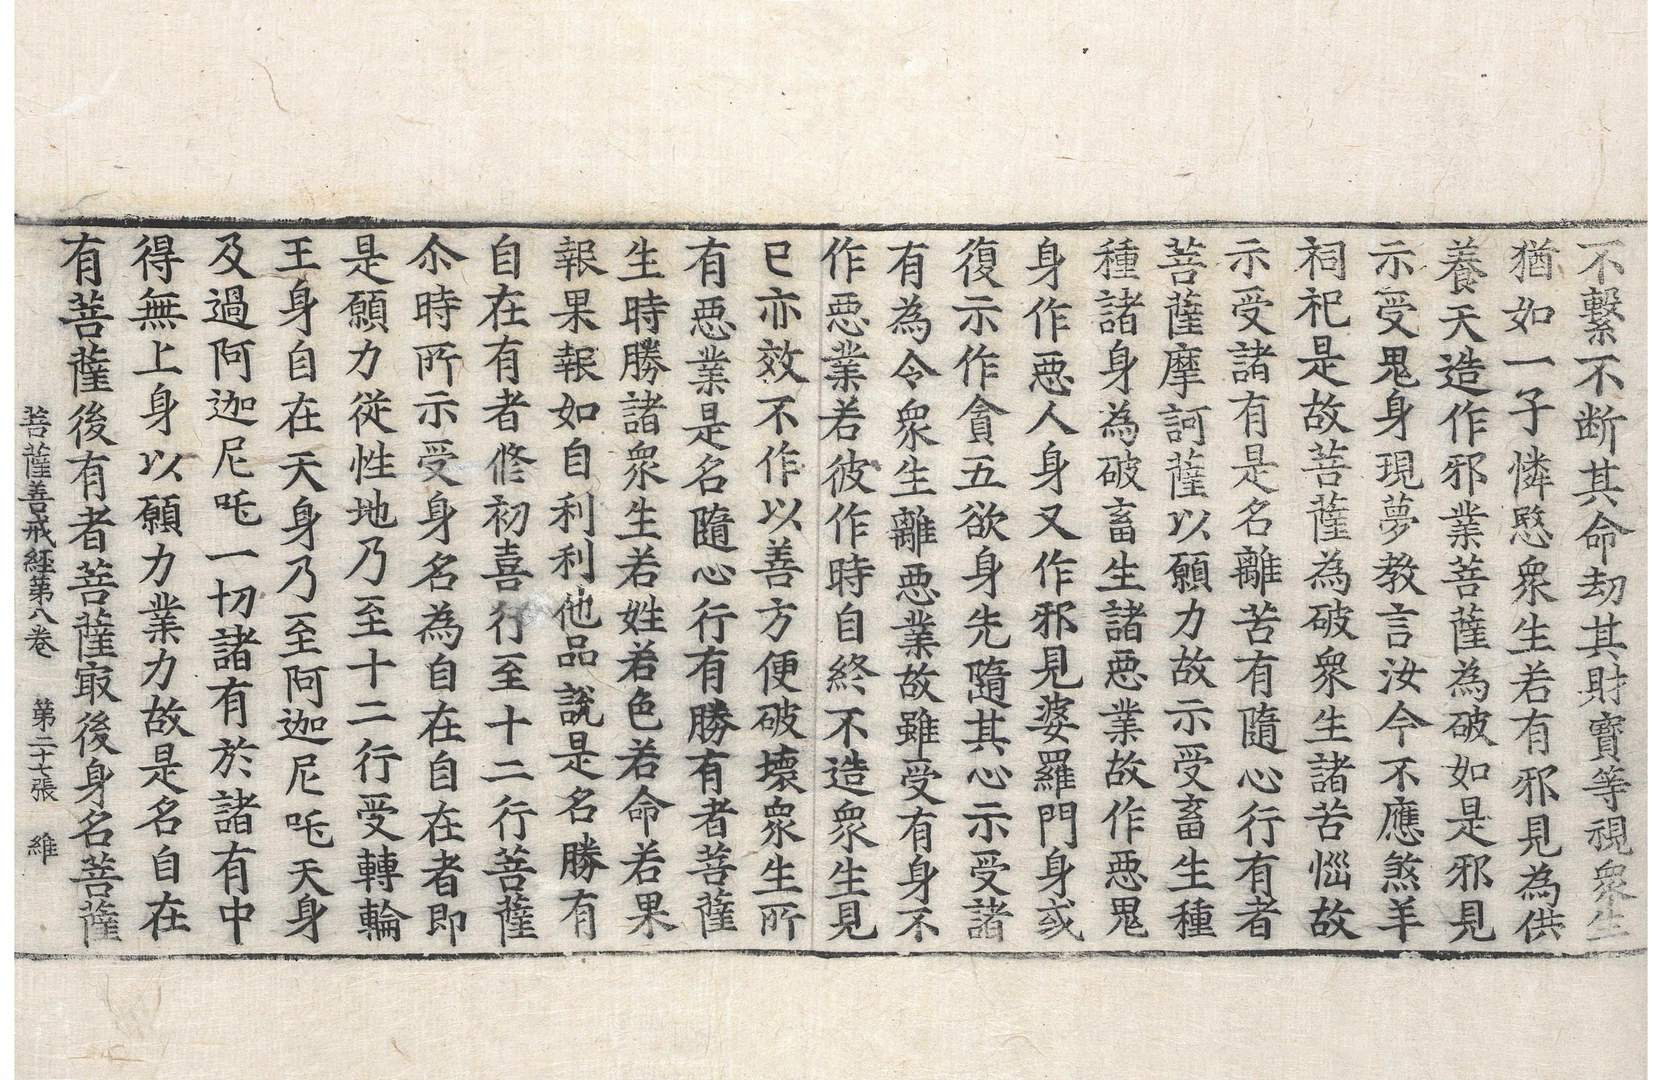 不繫不断其命劫其財寶等視衆生
猶如一子憐愍衆生若有邪見為供
養天造作邪業菩薩為破如是邪見
示受鬼身現夢教言汝今不應煞羊
祠祀是故菩薩為破衆生諸苦惱故
示受諸有是名離苦有隨心行有者
菩薩摩訶薩以願力故示受畜生種
種諸身為破畜生諸惡業故作惡鬼
身作惡人身又作邪見婆羅門身或
復示作貪五欲身先隨其心示受諸
有為令衆生離惡業故雖受有身不
作惡業若彼作時自終不造衆生見
已亦效不作以善方便破壞衆生所
有惡業是名隨心行有勝有者菩薩
生時勝諸衆生若姓若色若命若果
報果報如自利利他品說是名勝有
自在有者修初喜行至十二行菩薩
尒時所示受身名為自在自在者即
是願力從性地乃至十二行受轉輪
王身自在天身乃至阿迦尼吒天身
及過阿迦尼吒一切諸有於諸有中
得無上身以願力業力故是名自在
有菩薩後有者菩薩㝡後身名菩薩
菩薩善戒經第八卷　第二十七張　維